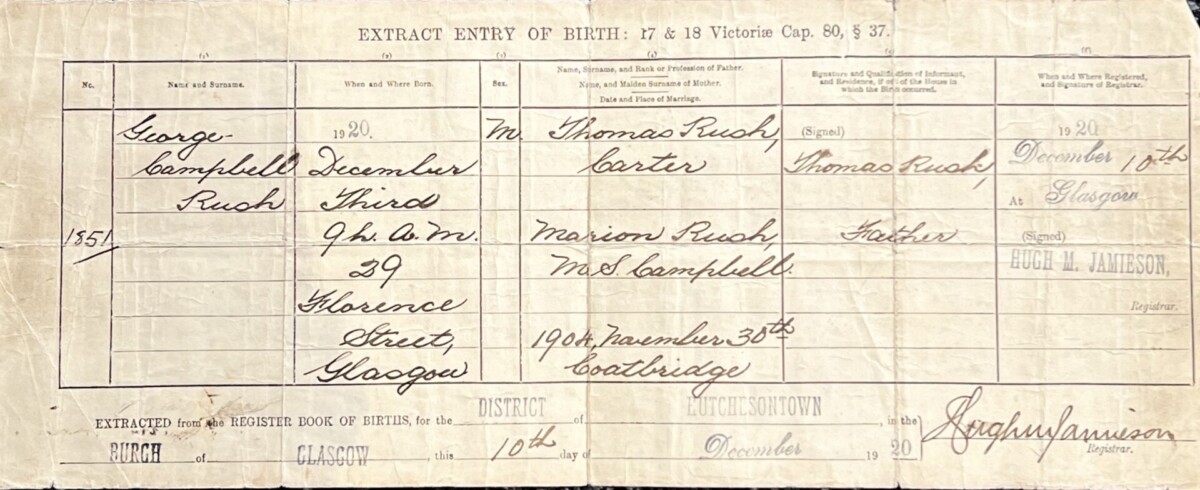 EXTRACT ENTRY OF BIRTH: 17 & 18 Victoriæ Cap. 80, § 37.
No.
Name and Surname.
When and Where Born.
Sex.
Name, Surname, and Rank or Profession of Father.
Name, and Maiden Surname of Mother.
Date and Place of Marriage.
Signature and Qualification of Informant,
and Residence, if out of the House in
which the Birth occurred.
When and Where Registered,
and Signature of Registrar.
1851
George
Campbell
Rush
1920.
December
Third
9h. A.M.
29
Florence
Street,
Glasgow
M.
Thomas Rush,
Carter
Marion Rush,
M.S. Campbell.
1904, November 30th
Coatbridge
(Signed)
Thomas Rush,
Father
1920
December 10th
At Glasgow
(Signed)
HUGH M. JAMIESON,
Registrar.
EXTRACTED from the REGISTER BOOK OF BIRTHS, for the DISTRICT of HUTCHESONTOWN, in the
BURGH of GLASGOW, this 10th day of December 1920
Hugh M Jamieson
Registrar.